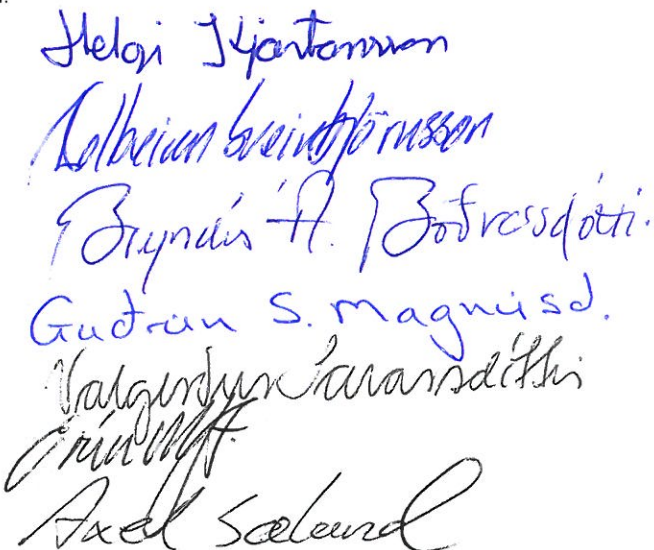 Helgi Kjartansson
Kolbeinn Sveinbjörnsson
Bryndís Á. Böðvarsdóttir.
Guðrún S. Magnúsd.
Valgerður Sævarsdóttir
Axel Sæland